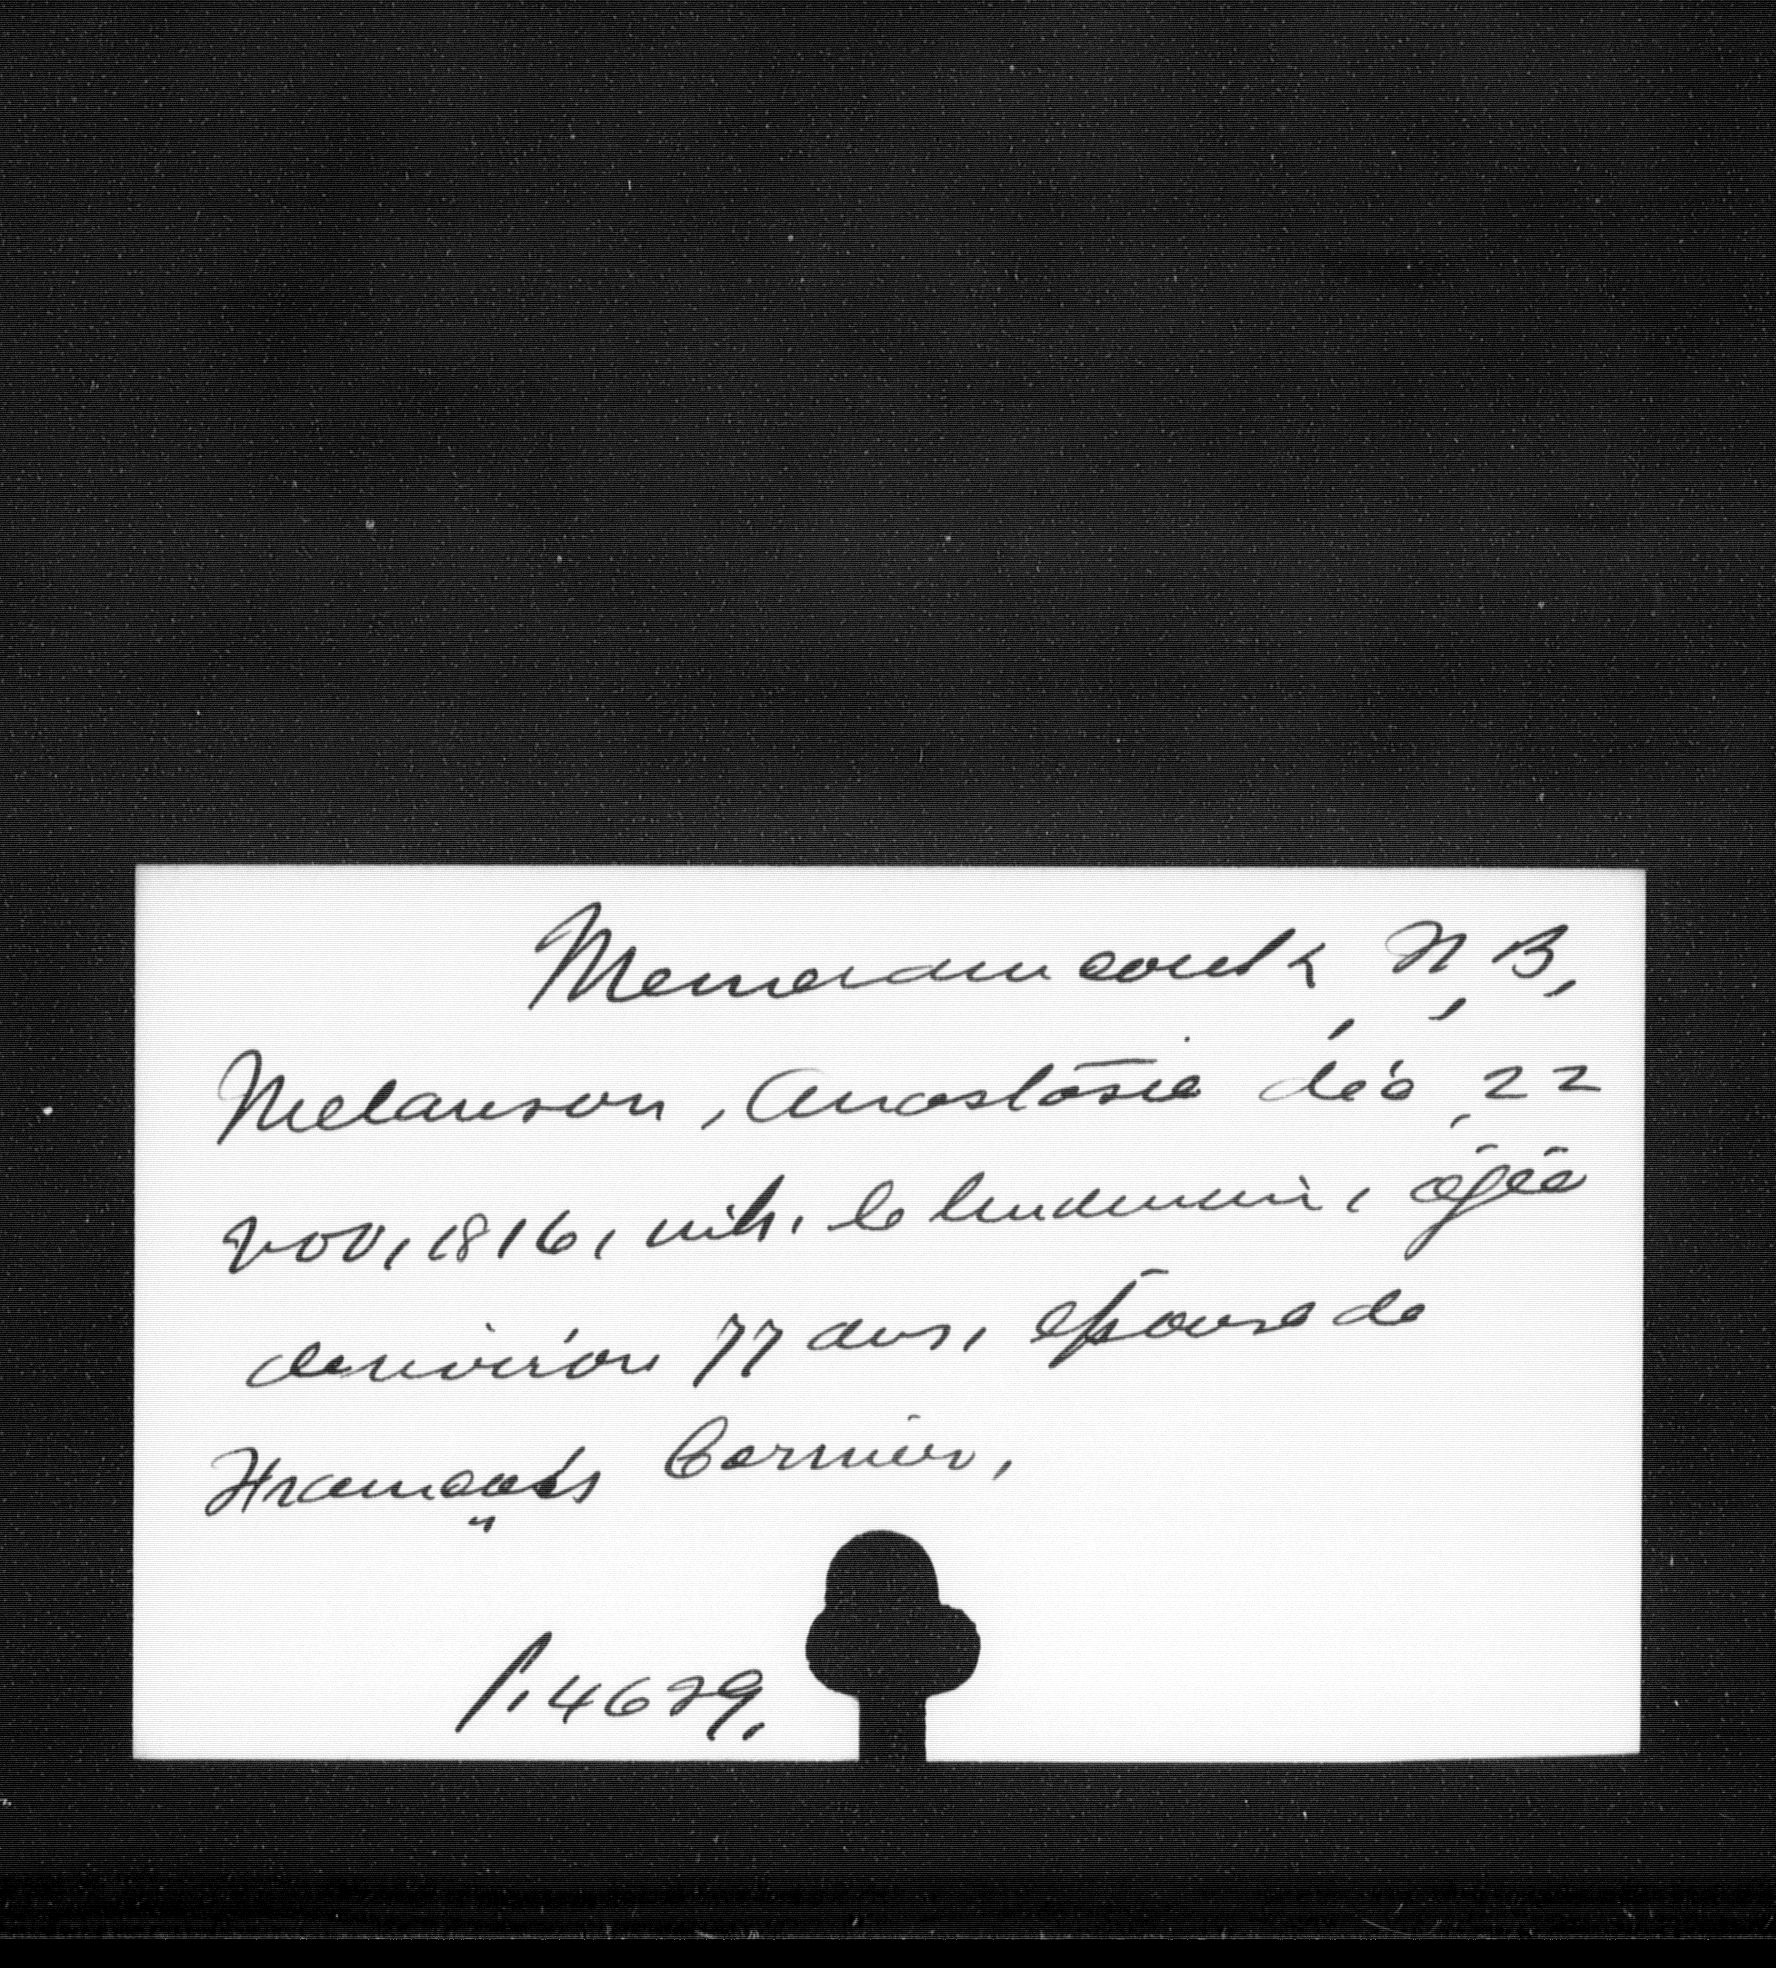 Memramcook, N.B,
Melanson, Anastasie déc, 22
nov, 1816, inh. le lendemain, agée
d'environ 77 ans, épouse de
François Cormier,
p. 4679.